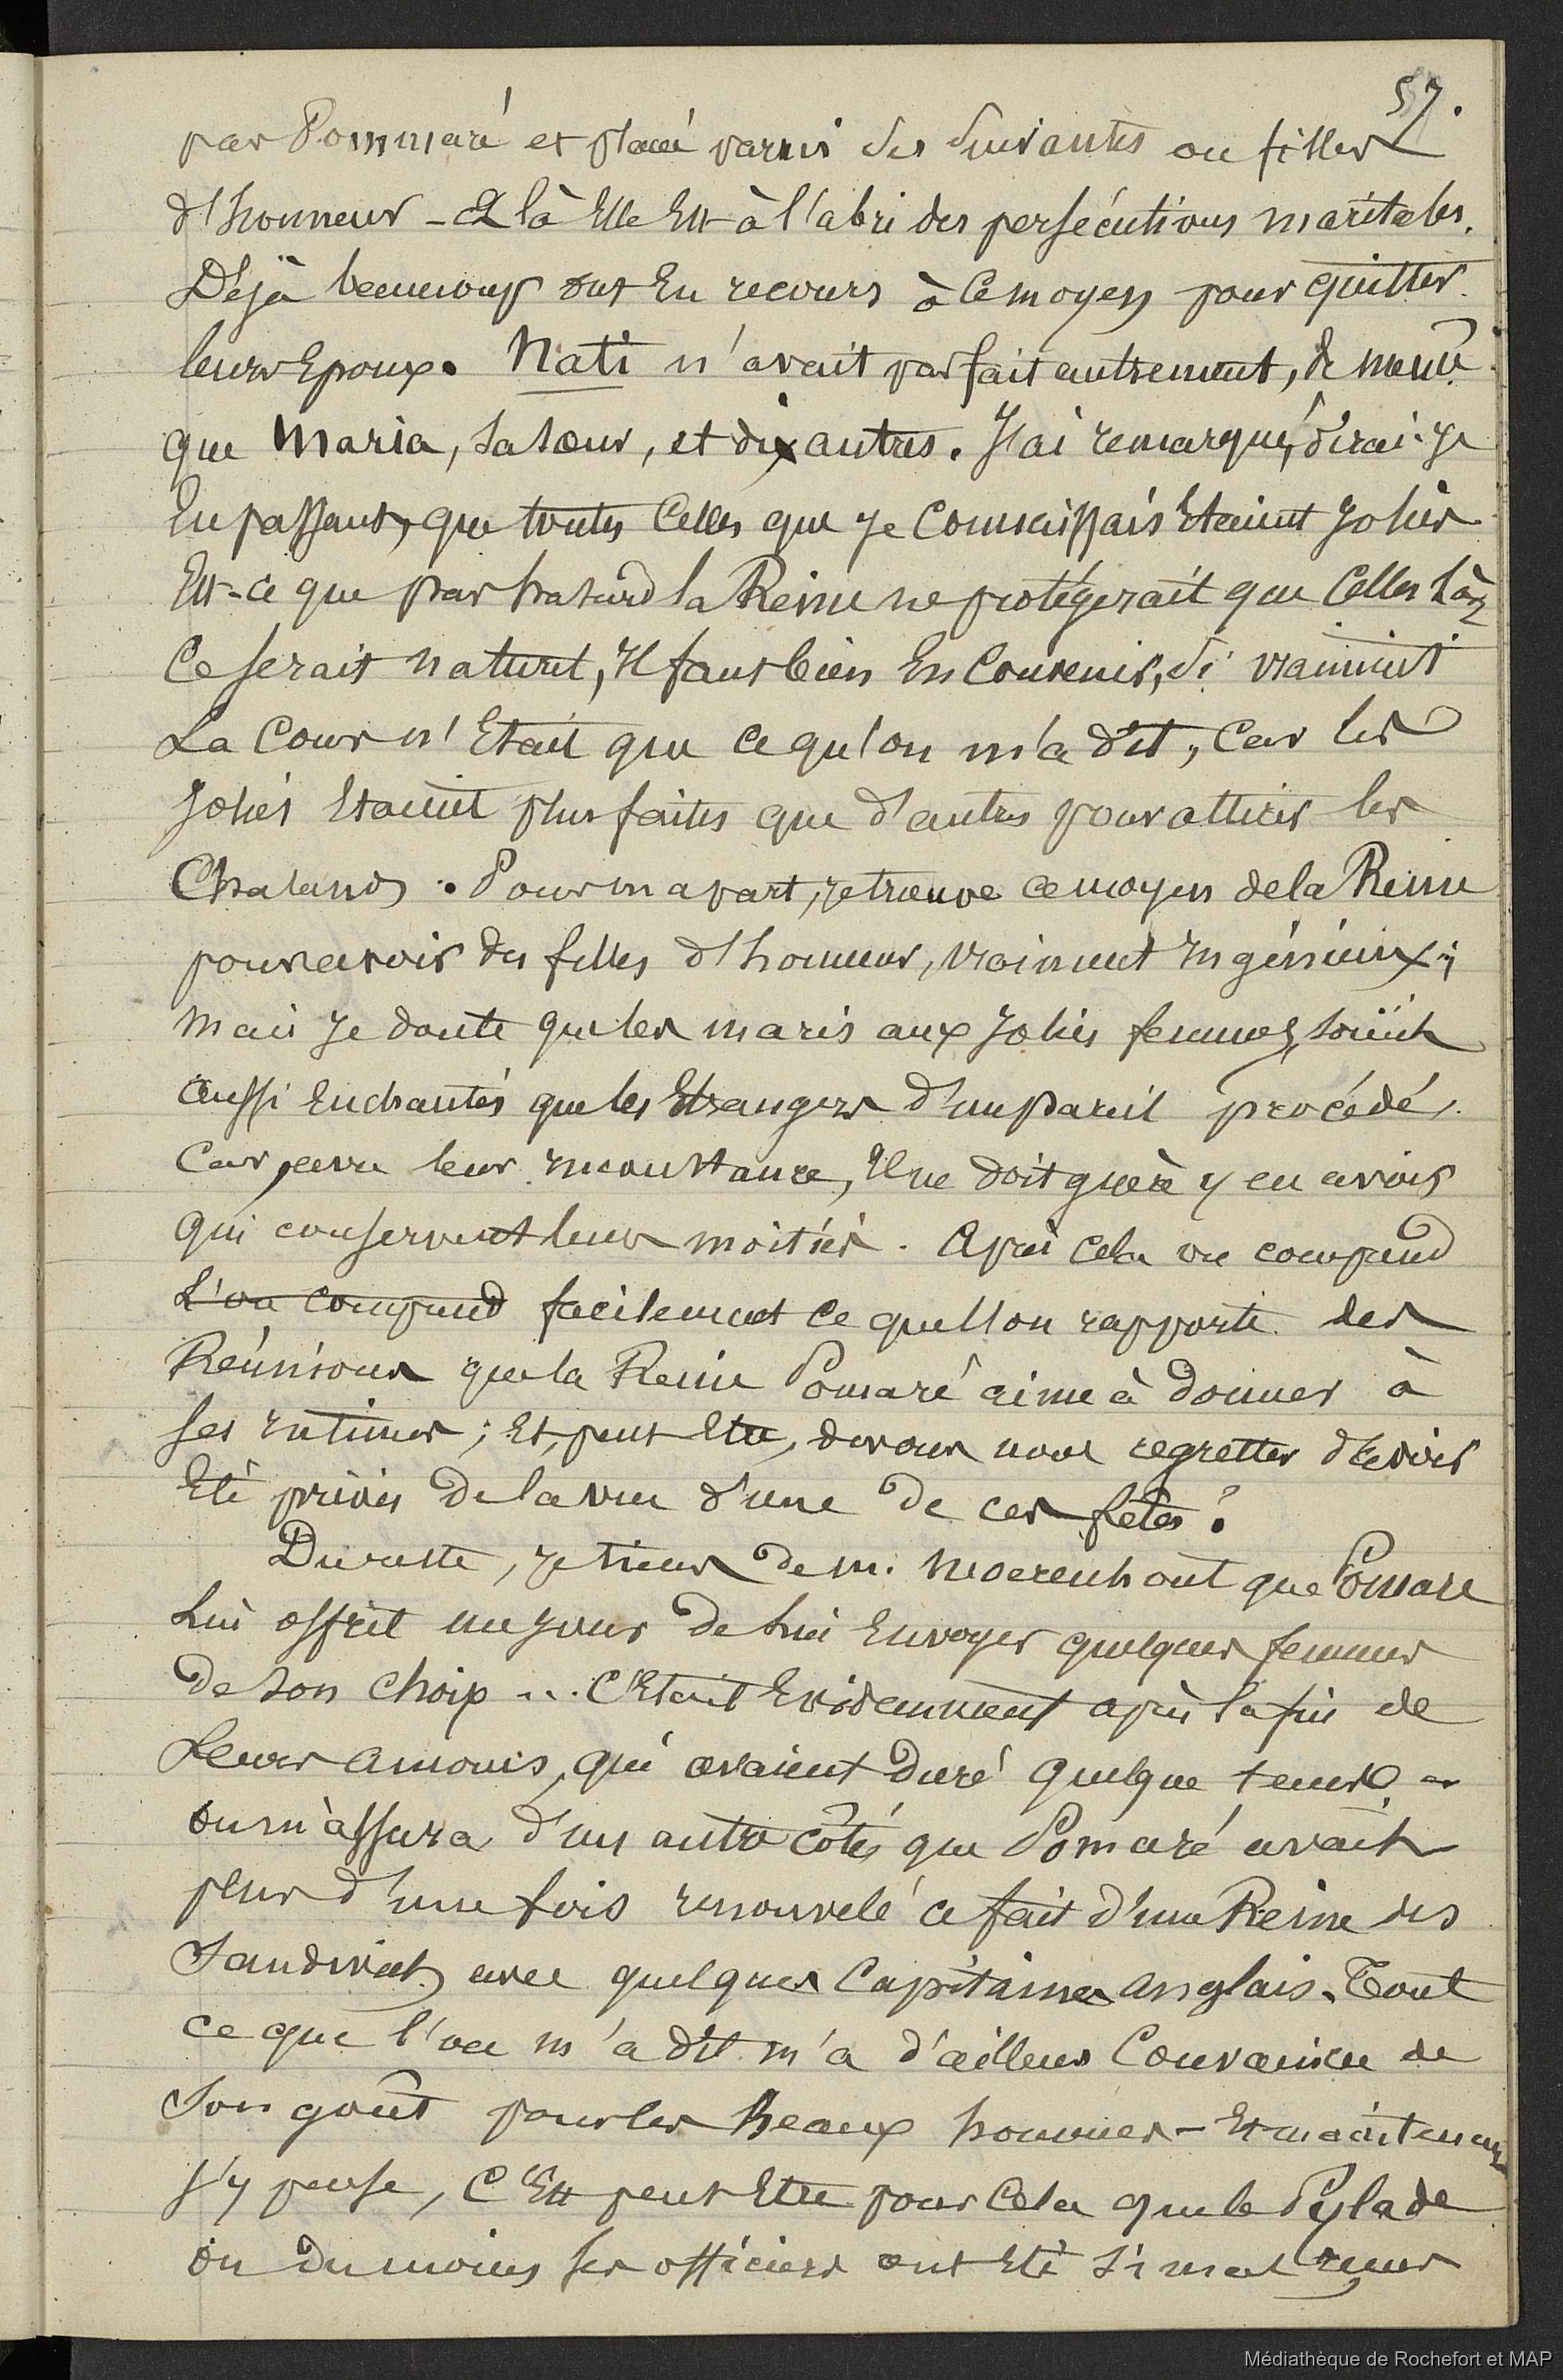 57.
par Pommaré et placée parmi ses suivantes ou filles
d'honneur - Et là Elle Est à l'abri des persécutions maritales.
Déjà beaucoup ont Eu recours à ce moyen pour quitter
leurs Epoux. Nati n'avait pas fait autrement, de même
que Maria, sa soeur, et dix autres. J'ai remarqué, dirai-je
En passant, que toutes Celles que je Connaissais Etaient Jolies
Est-ce que par hasard la Reine ne protégerait que Celles là?
Ce serait naturel, Il faut bien En Convenir, si vraiment
La Cour n'Etait que ce qu'on m'a dit, Car les
Jolies Etaient plus faites que d'autres pour attirer les
Chalands. Pour ma part, je trouve ce moyen de la Reine
pour avoir des filles d'honneur, vraiment Ingénieux;
mais Je doute que les maris aux Jolies femmes, soient
aussi Enchantés que les Etrangers d'un pareil procédé,
Car, vu leur Inconstance, Il ne doit guère y en avoir
qui conservent leurs moitiés. Après cela on comprend
L'on comprend facilement ce que l'on rapporte des
Réunions que la Reine Pomaré aime à donner à
ses Intimes; Et, peut Etre, devons nous regretter d'avoir
Eté privés de la vue d'une de ces fêtes?
Du reste, je tiens de M. Moerenhout que Pomare
Lui offrit un jour de Lui Envoyer quelques femmes
de son choix ... C'Etait Evidemment après la fin de
Leurs amours, qui avaient duré quelque tems. -
on m'assura, d'un autre côté, que Pomaré avait
plus d'une fois renouvelé ce fait d'une Reine des
Sandwich avec quelques Capitaines anglais. Tout
ce que l'on m'a dit m'a d'ailleurs Convaincu de
Son goût pour les Beaux hommes - Et maintenant
J'y pense, C'Est peut Etre pour Cela que le Pylade
ou du moins ses officiers ont Eté si mal reçus